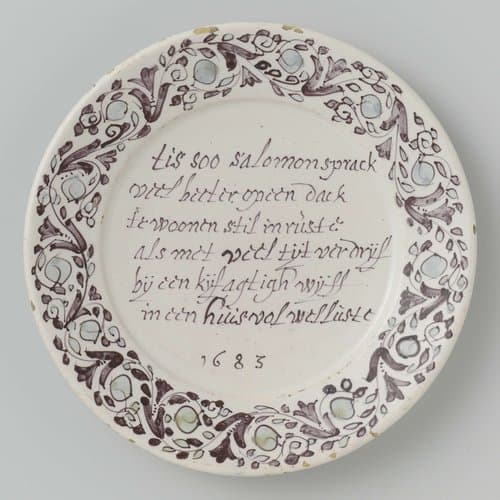 tis soo salomon sprack
veel beeter op een dack
te woonen stil in rùste
als met veel tyt verdryf
by een kyfagtigh wyff
in een huis vol wellùste
1683